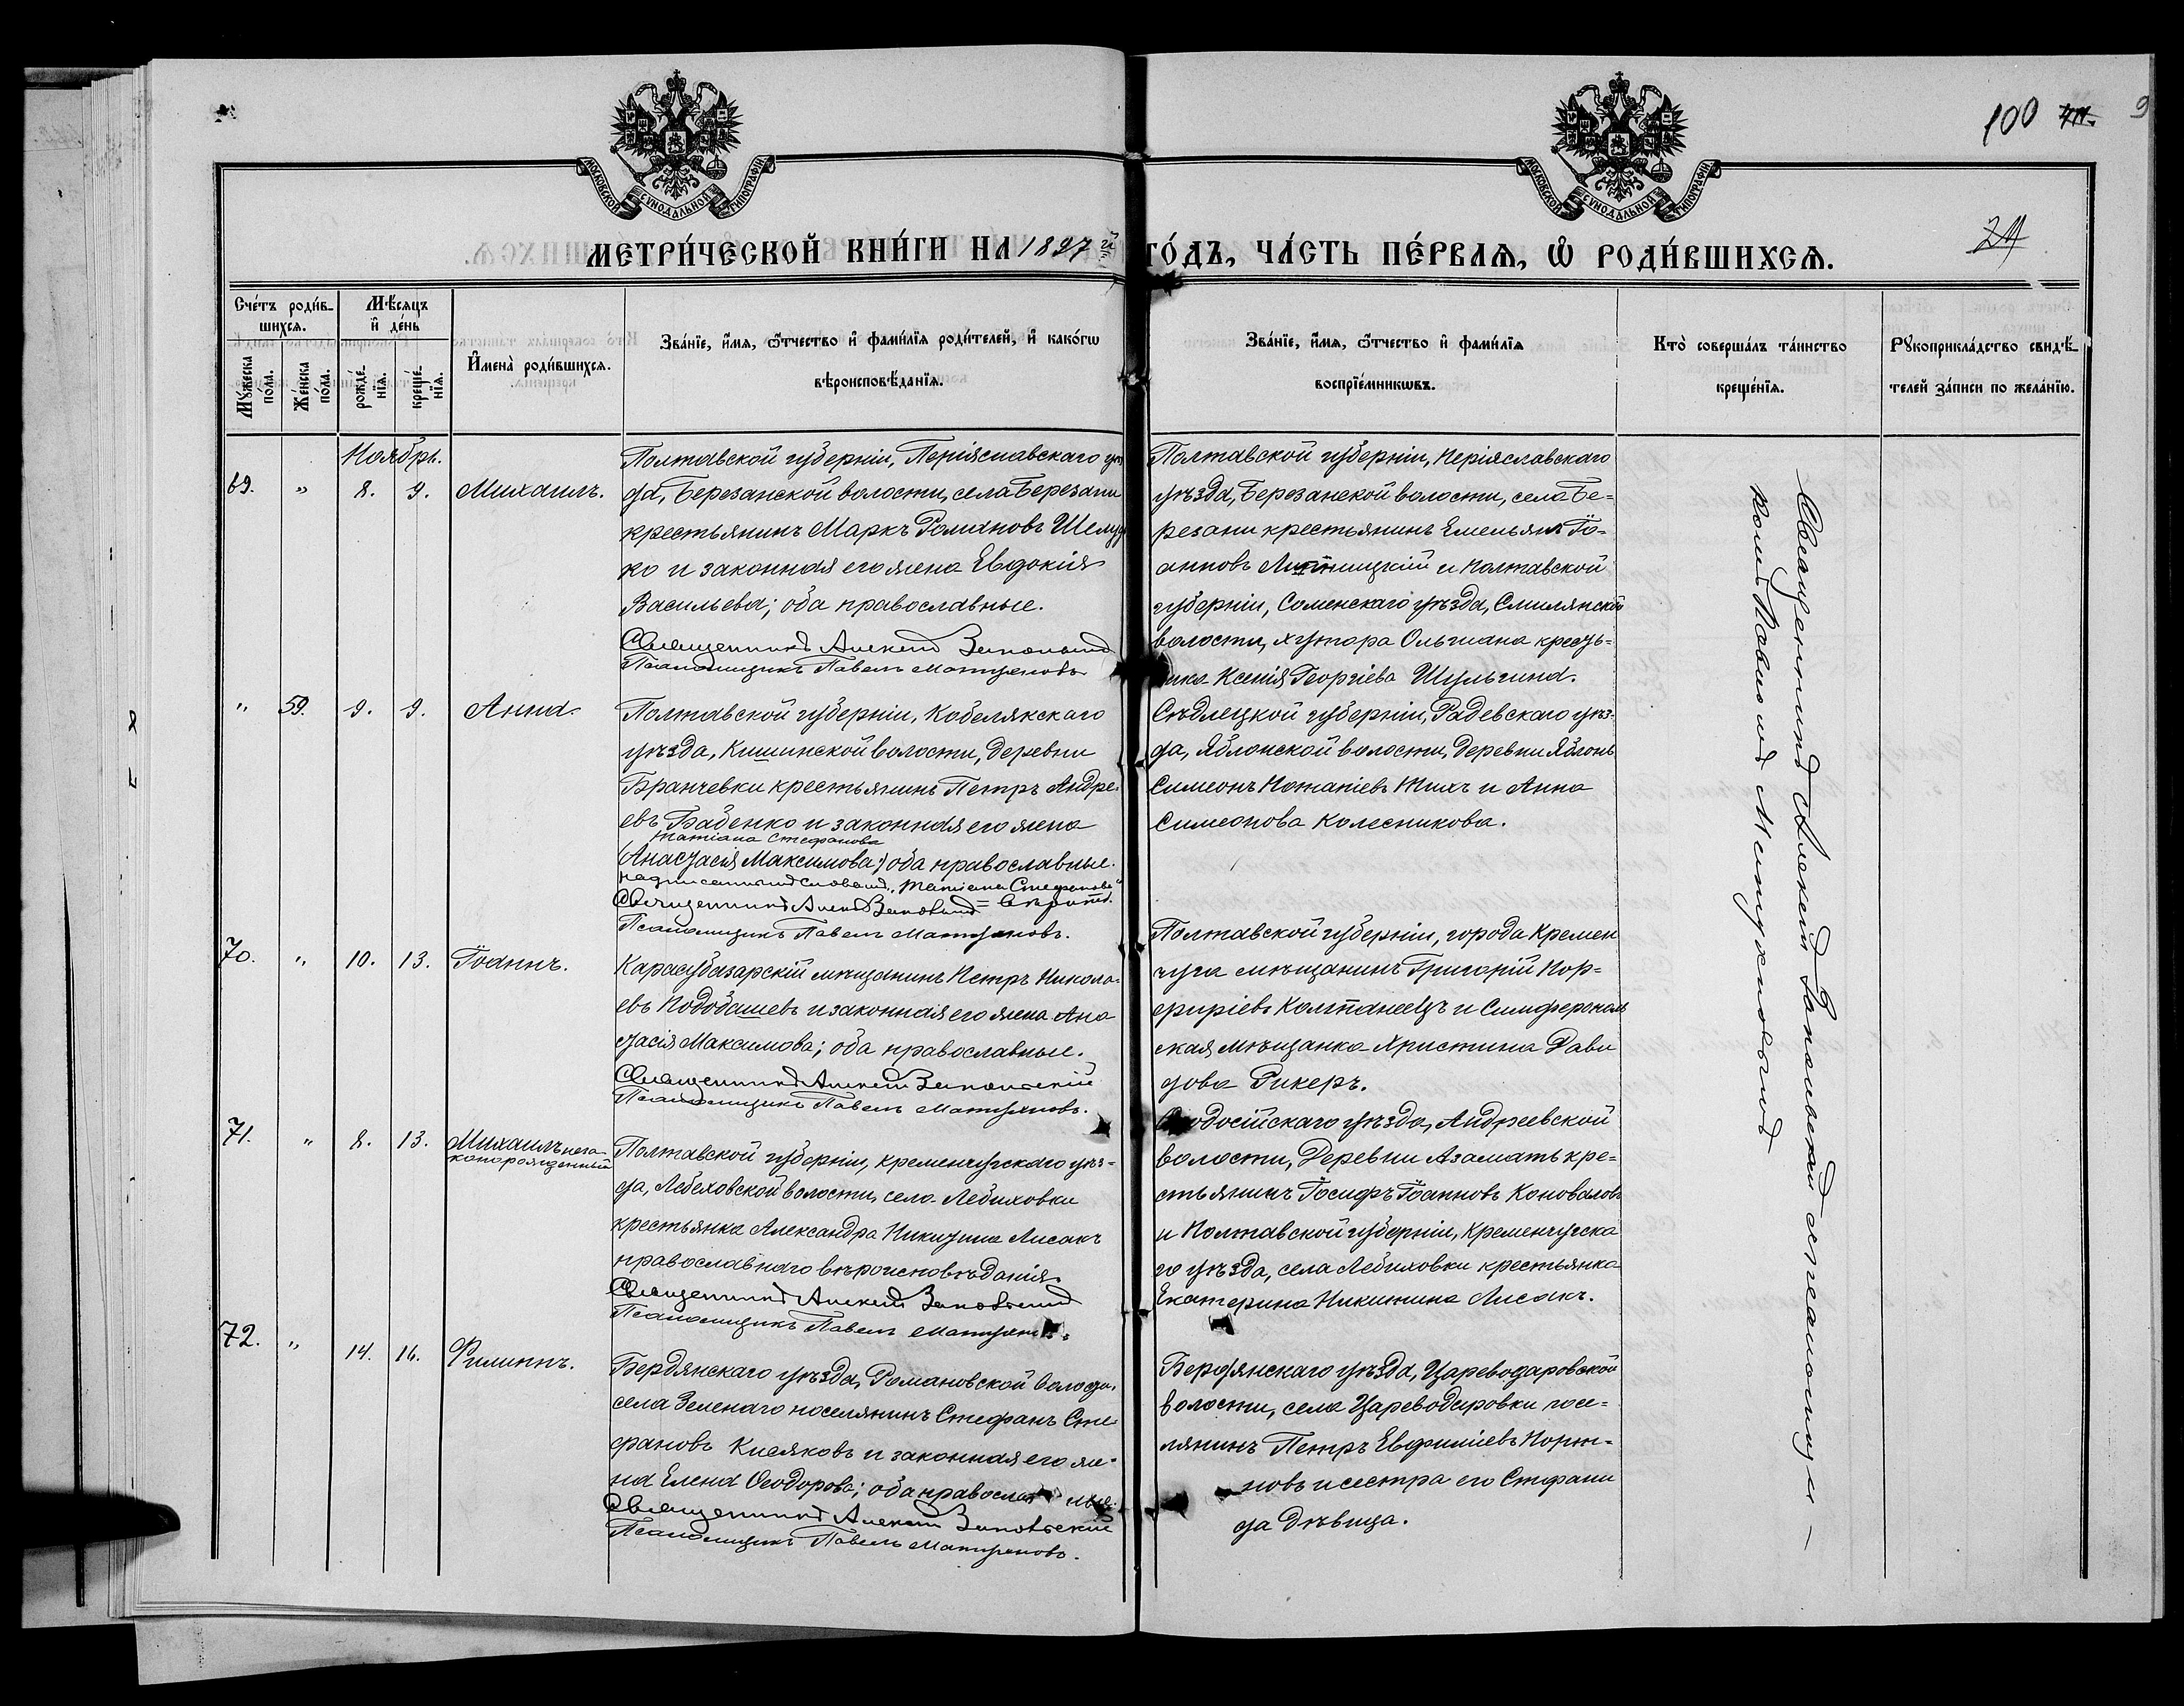 МОСКОВСКОЙ СУНОДАЛЬНОЙ ТИПОГРАФІИ
МОСКОВСКОЙ СУНОДАЛЬНОЙ ТИПОГРАФІИ
100
24
МЕТРИ́ЧЕСКОЙ КНИ́ГИ НА 1897 й ГО́ДЪ, ЧА́СТЬ ПЕ́РВАѦ, Ѡ҆ РОДИ́ВШИХСѦ.
Сче́тъ роди́в-
шихсѧ.
Мꙋ́жеска по́ла.
Же́нска по́ла.
Мѣ́сяцъ
и҆ де́нь
рожде́нїѧ.
креще́нїѧ.
И҆мена̀ роди́вшихсѧ.
Зва́нїе, и҆́мѧ, ѻ҆́тчество и҆ фами́лїѧ роди́телей, и҆ како́гѡ
вѣроисповѣ́данїѧ.
Зва́нїе, и҆́мѧ, ѻ҆́тчество и҆ фами́лїѧ
воспрїе́мникѡвъ.
Кто̀ соверша́лъ та́инство
креще́нїѧ.
Рꙋкоприкла́дство свидѣ́-
телей за́писи по жела́нїю.
Ноябрь.
69. " 8. 9. Михаилъ.
Полтавской губерніи, Періяславскаго уѣз
да, Березанской волости, села Березани
крестьянинъ Маркъ Романовъ
ко и законная его жена Евдокія
Васильева; оба православные.
Священникъ Алексій
Псаломщикъ Павелъ Матушновъ
Полтавской губерніи, Періяславскаго
уѣзда, Березанской волости, села Бе-
резани крестьянинъ Емельянъ Іо-
анновъ и Полтавской
губерніи, уѣзда, Смилянской
волости, хутора Ольгиана кресть-
янка Ксенія Георгіева Шульгина.
" 59. 9. 9. Анна
Полтавской губерніи, Кобелякскаго
уѣзда, Кишинской волости, деревни
Бранчевки крестьянинъ Петръ Андре-
евъ Бабенко и законная его жена
Татіана Стефанова
(Анастасія Максимова;) оба православные.
надписанныя слова „Татіана Стефанова"
Священникъ Алексій = вѣрить.
Псаломщикъ Павелъ Матушновъ.
Сѣдлецкой губерніи, Радевскаго уѣз-
да, Яблонской волости, деревни Яблонь
Симеонъ Потапіевъ и Анна
Симеонова Колесникова.
70. " 10. 13. Іоаннъ.
Карасубазарскій мѣщанинъ Петръ Никола-
евъ Подобашевъ и законная его жена Ана
стасія Максимова; оба православные.
Священникъ Алексій
Псаломщикъ Павелъ Матушновъ.
Полтавской губерніи, города Кремен
чуга мѣщанинъ Григорій Пор-
фиріевъ и Симферополь
ская мѣщанка Христина Дави
дова Рикеръ.
71. " 8. 13. Михаилъ неза-
конорожденный
Полтавской губерніи, Кременчугскаго уѣз-
да, Лебеховской волости, села Лебиховки
крестьянка Александра Никитина Лисакъ
православнаго вѣроисповѣданія.
Священникъ Алексій
Псаломщикъ Павелъ
Ѳеодосійскаго уѣзда, Андреевской
волости, деревни Азаматъ кре-
стьянинъ Іосифъ Іоанновъ Коноваловъ
и Полтавской губерніи, Кременчугска
го уѣзда, села Лебиховки крестьянка
Екатерина Никитина Лисакъ.
72. " 14. 16. Филиппъ.
Бердянскаго уѣзда, Романовской волости,
села Зеленаго поселянинъ Стефанъ Сте-
фановъ Кисяковъ и законная его же-
на Елена Ѳеодорова; оба православные.
Священникъ Алексій
Псаломщикъ Павелъ Матушновъ.
Бердянскаго уѣзда, Цареводаровской
волости, села Цареводаровки посе-
лянинъ Петръ Евфиміевъ
новъ и сестра его Стефани
да дѣвица.
Священникъ Алексій съ псаломщи-
комъ Павломъ Матушновымъ